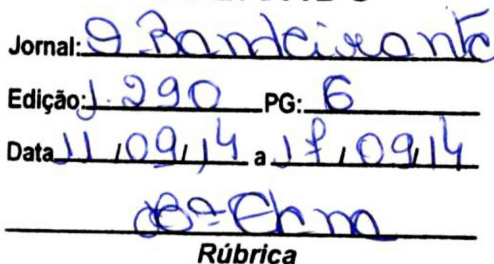 Jornal: O Bandeirante
Edição: 1.290 PG: 6
Data 11/09/14 a 17/09/14
Rúbrica